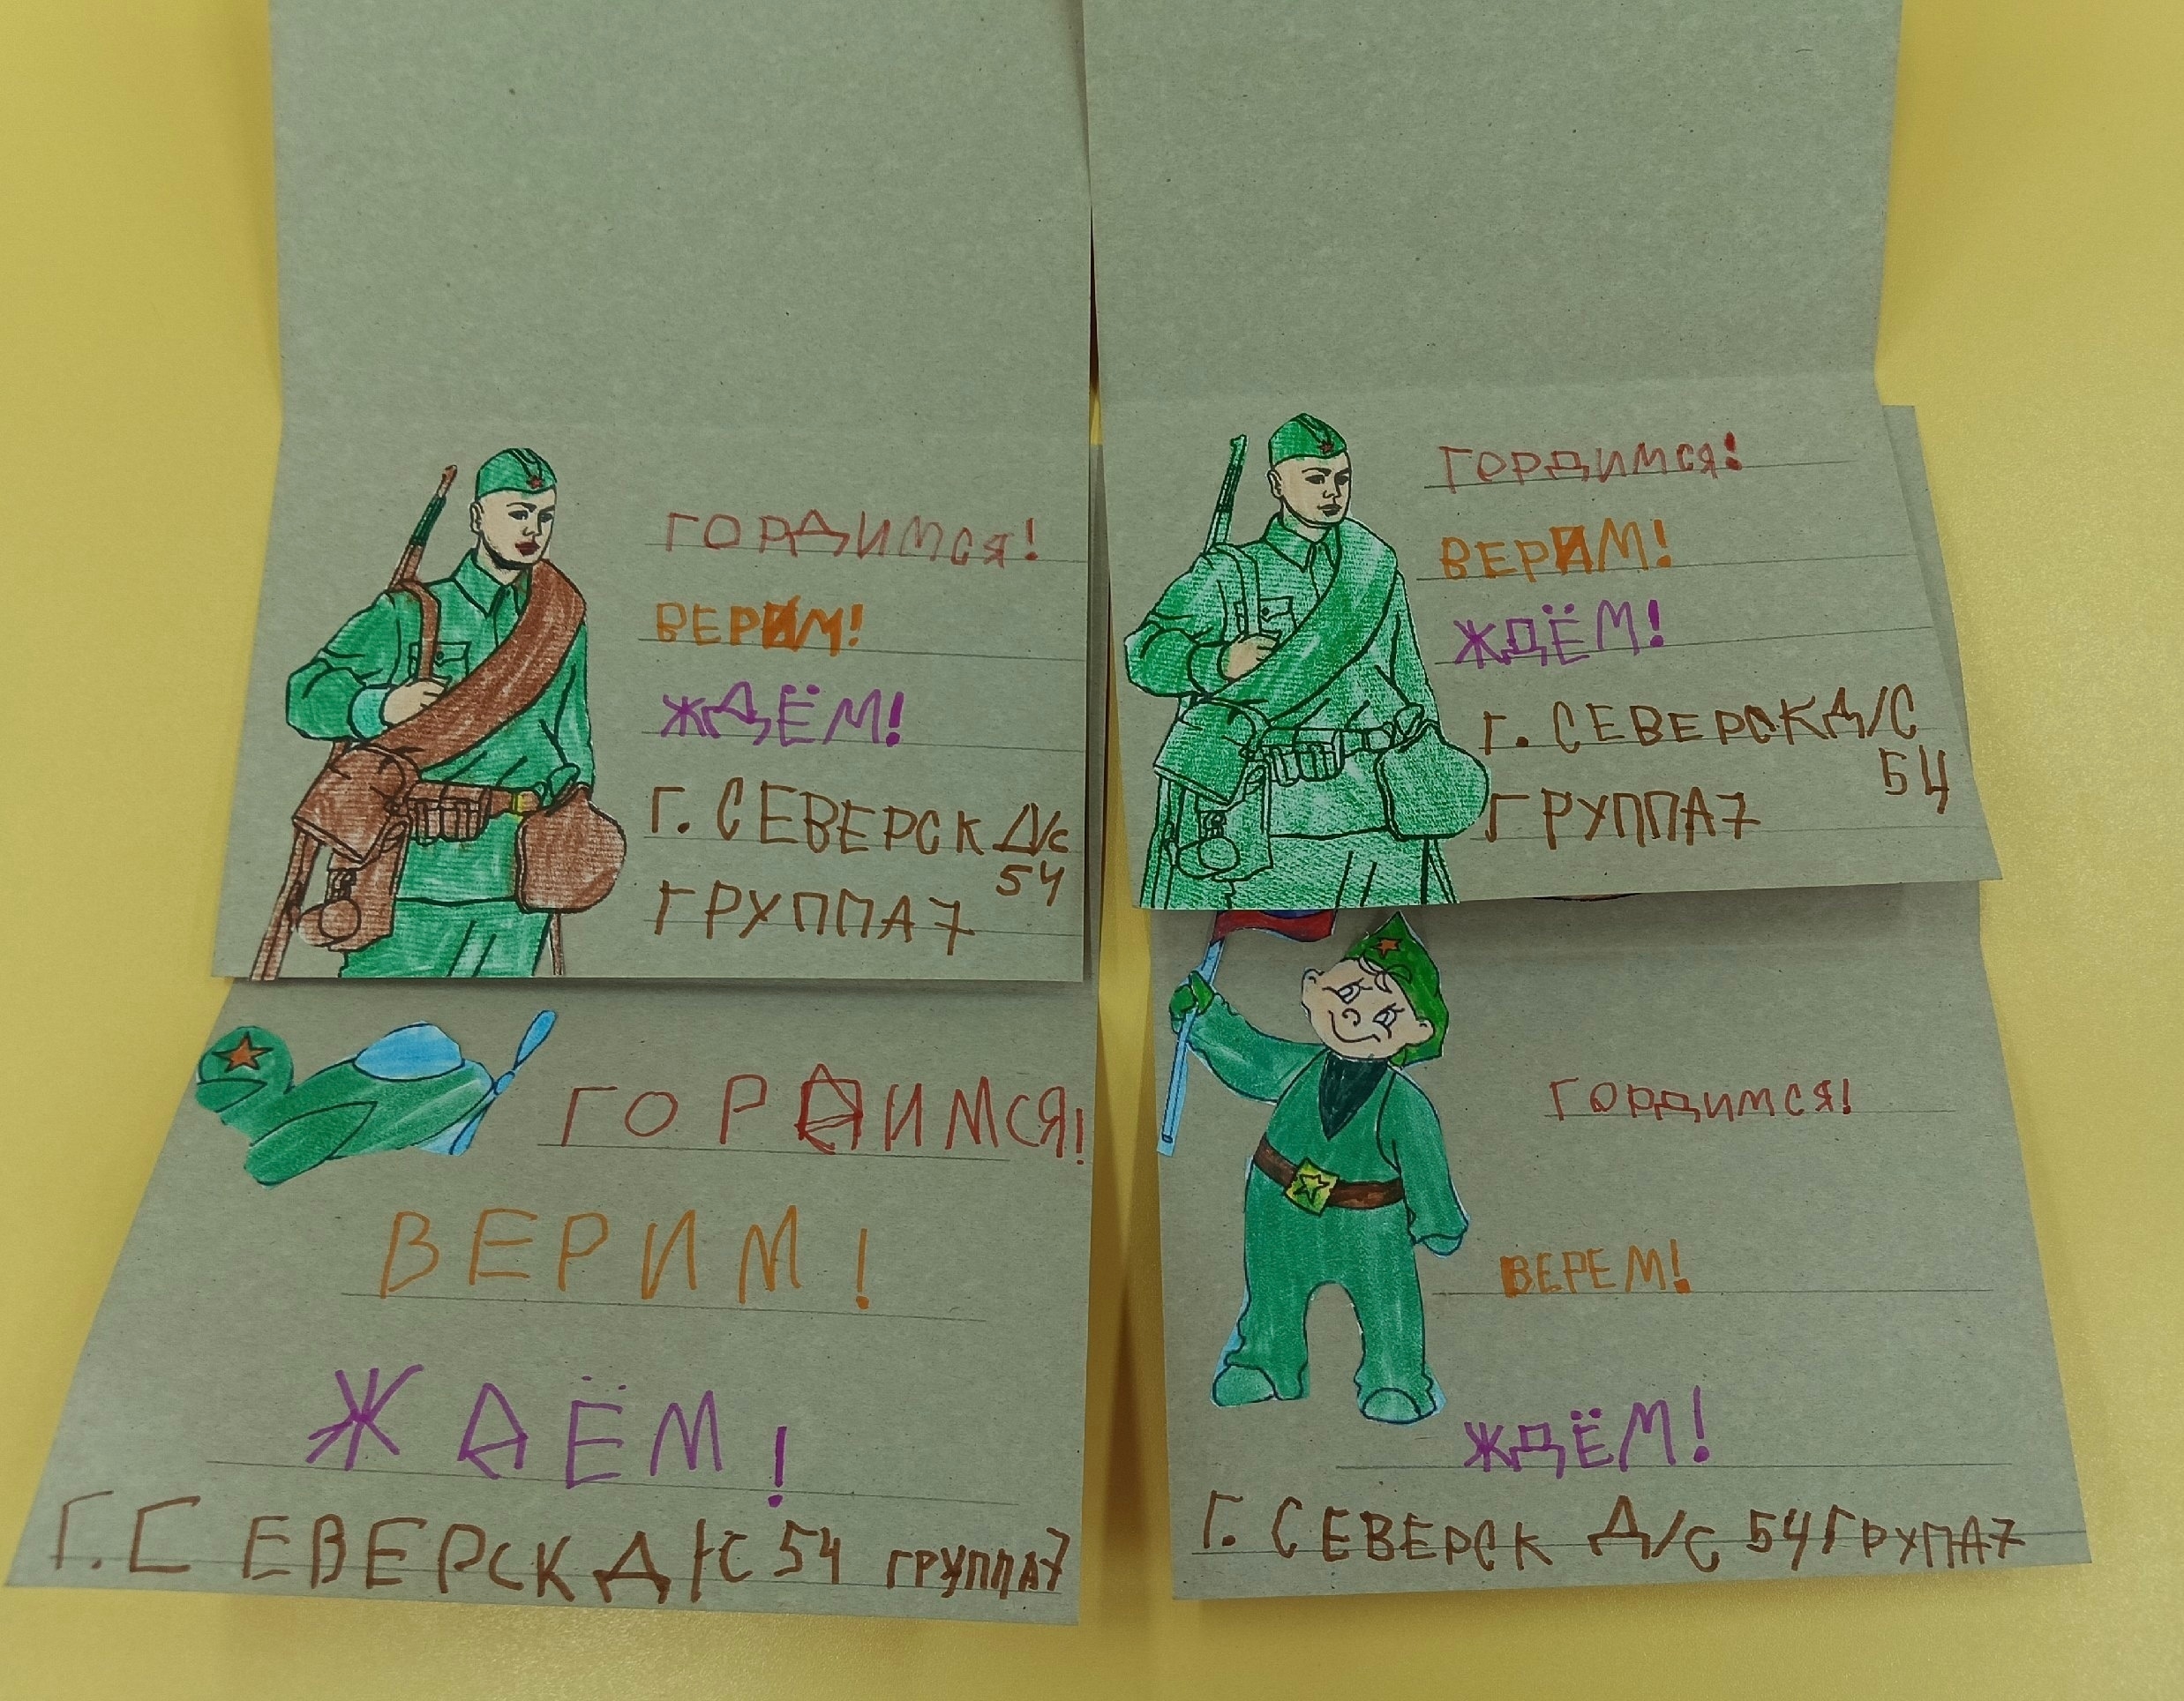 ГОРДИМСЯ!
ВЕРИМ!
ЖДЁМ!
Г. СЕВЕРСК Д/С
54
ГРУППА 7
ГОРДИМСЯ!
ВЕРИМ!
ЖДЁМ!
Г. СЕВЕРСК Д/С
54
ГРУППА 7
ГОРДИМСЯ!
ВЕРИМ!
ЖДЁМ!
Г. СЕВЕРСК Д/С 54 ГРУППА 7
ГОРДИМСЯ!
ВЕРЕМ!
ЖДЁМ!
Г. СЕВЕРСК Д/С 54 ГРУПА 7